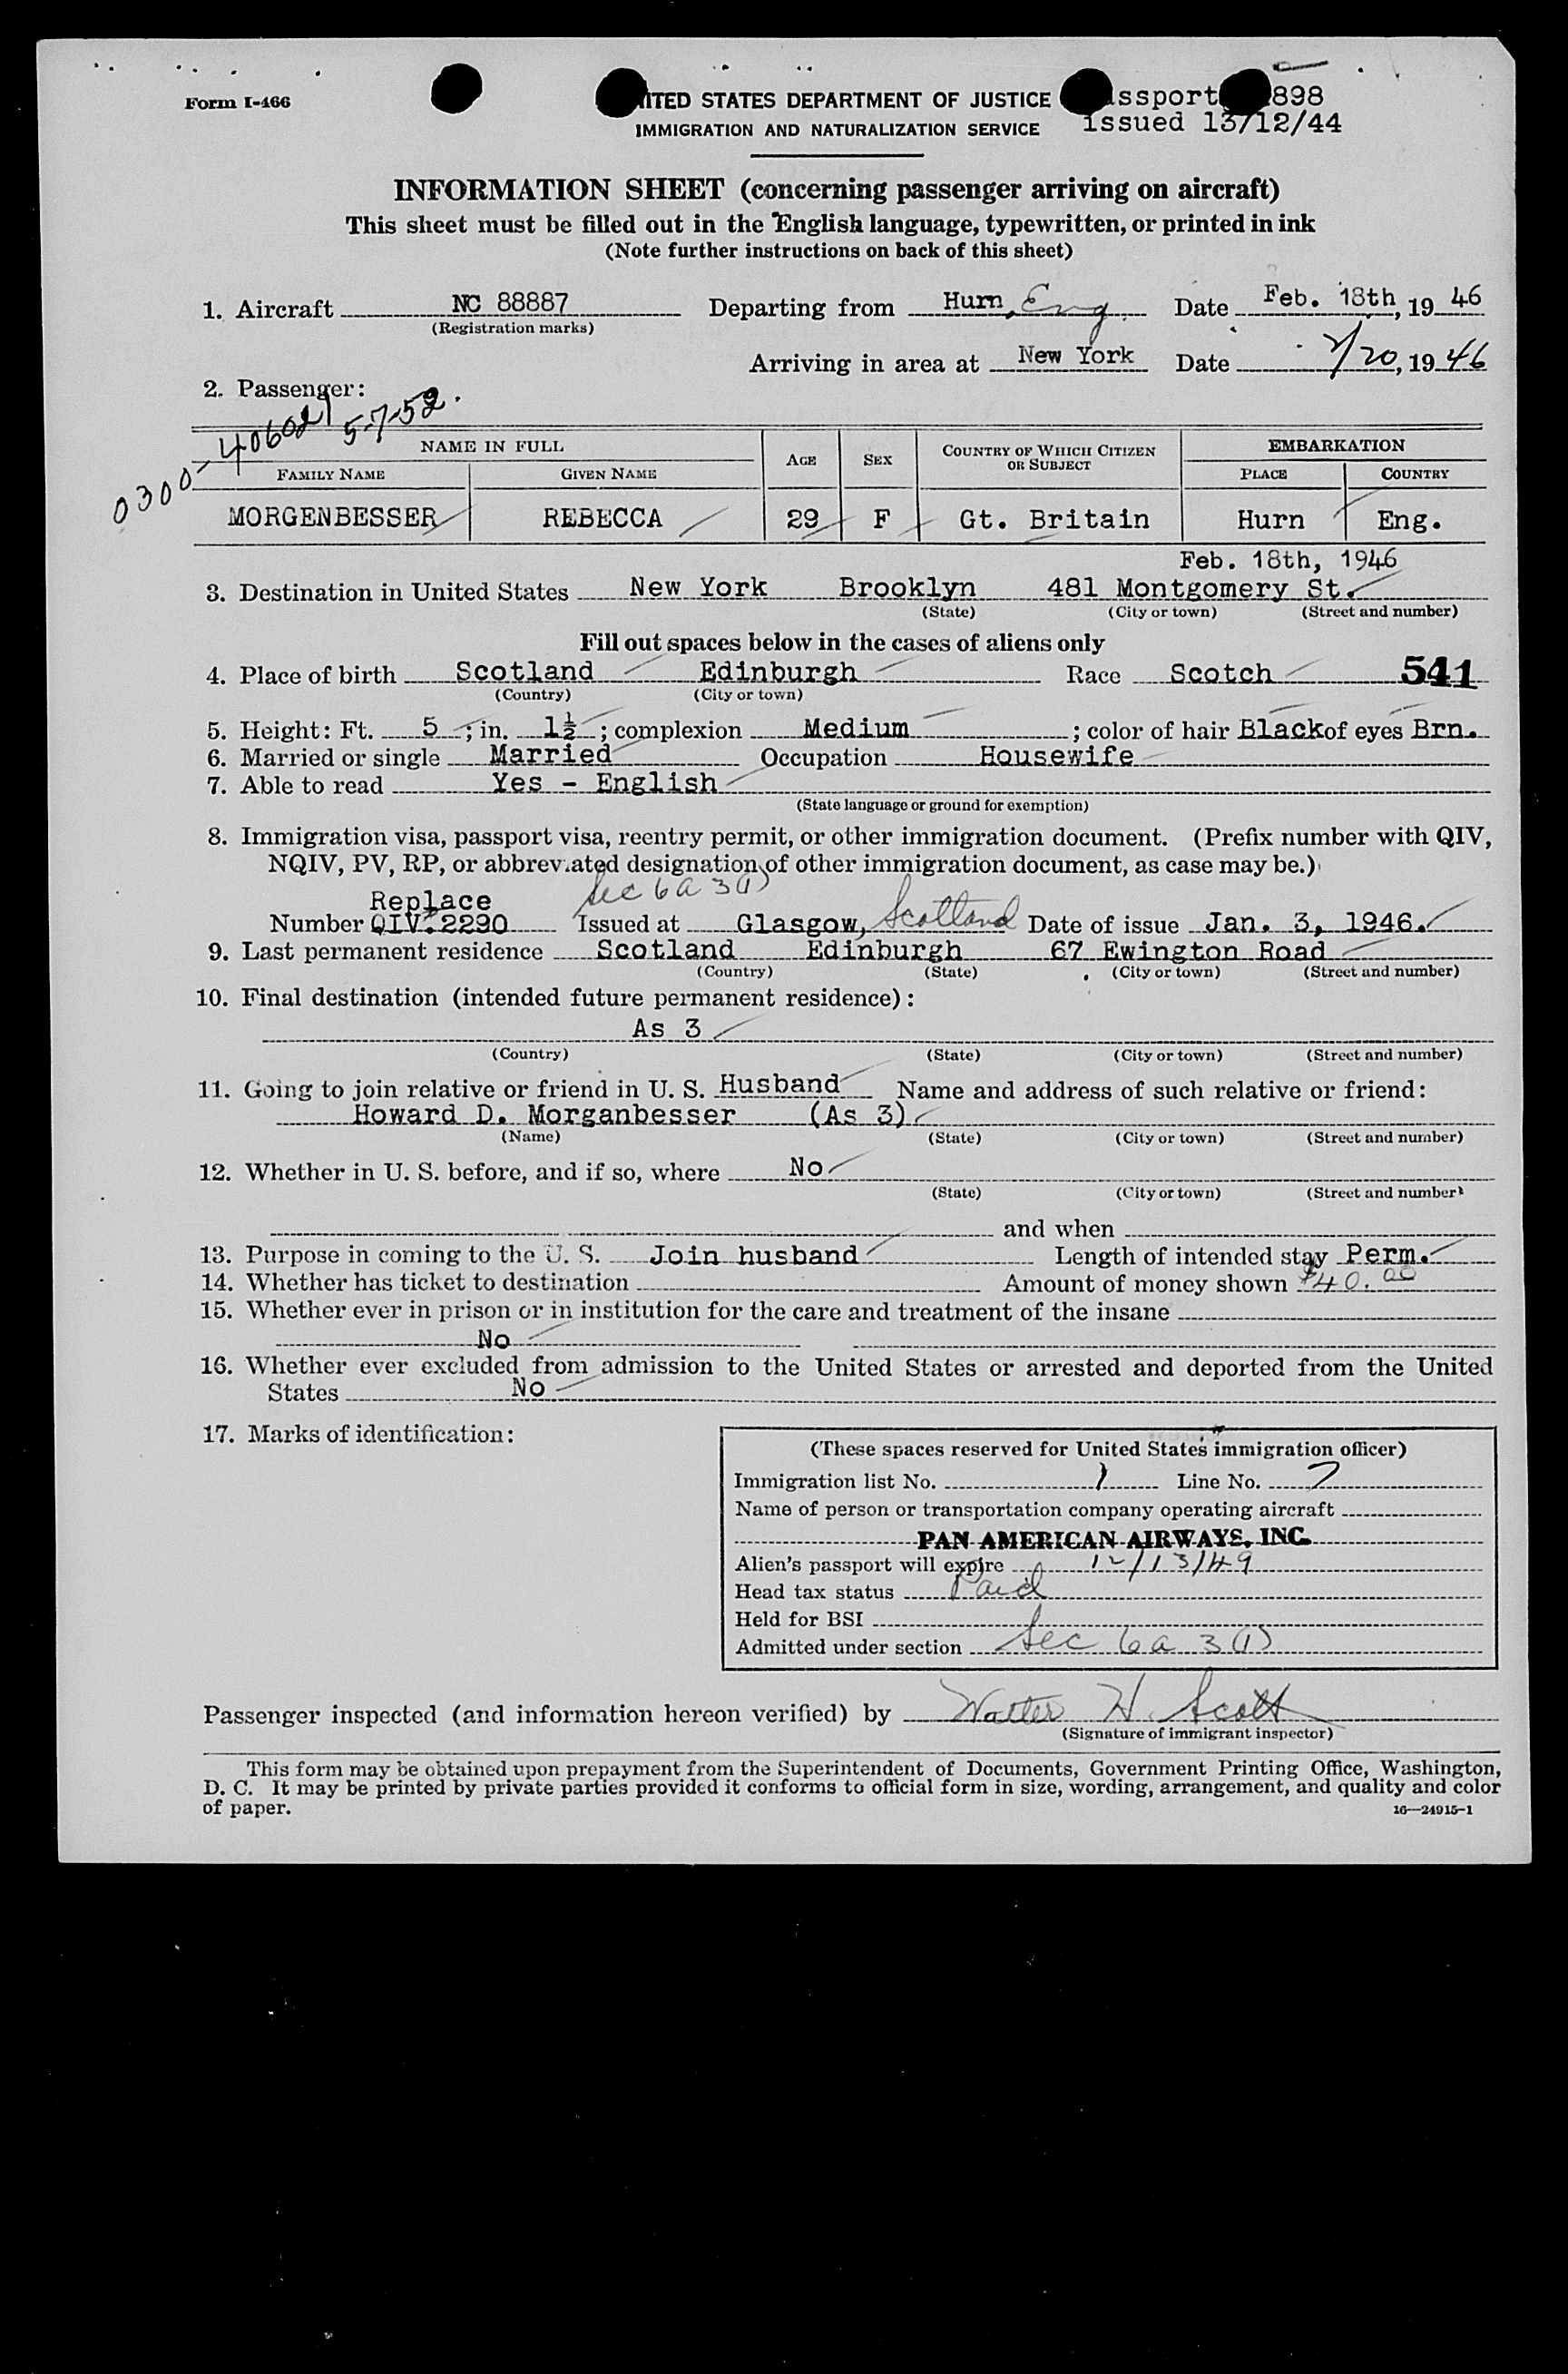 Form I-466
ITED STATES DEPARTMENT OF JUSTICE
ssport 898
IMMIGRATION AND NATURALIZATION SERVICE
issued 13/12/44
INFORMATION SHEET (concerning passenger arriving on aircraft)
This sheet must be filled out in the English language, typewritten, or printed in ink
(Note further instructions on back of this sheet)
1. Aircraft NC 88887 Departing from Hurn, Eng. Date Feb. 18th, 19 46
(Registration marks)
Arriving in area at New York Date 2/20, 19 46
2. Passenger:
0300-406021 5-7-52.
NAME IN FULL AGE SEX COUNTRY OF WHICH CITIZEN OR SUBJECT EMBARKATION
FAMILY NAME GIVEN NAME PLACE COUNTRY
MORGENBESSER REBECCA 29 F Gt. Britain Hurn Eng.
Feb. 18th, 1946
3. Destination in United States New York Brooklyn 481 Montgomery St.
(State) (City or town) (Street and number)
Fill out spaces below in the cases of aliens only
4. Place of birth Scotland Edinburgh Race Scotch 541
(Country) (City or town)
5. Height: Ft. 5 ; in. 1½ ; complexion Medium ; color of hair Black of eyes Brn.
6. Married or single Married Occupation Housewife
7. Able to read Yes - English
(State language or ground for exemption)
8. Immigration visa, passport visa, reentry permit, or other immigration document. (Prefix number with QIV,
NQIV, PV, RP, or abbreviated designation of other immigration document, as case may be.)
Sec 6a 3(1)
Replace
Number QIV. 2290 Issued at Glasgow, Scotland Date of issue Jan. 3, 1946.
9. Last permanent residence Scotland Edinburgh 67 Ewington Road
(Country) (State) (City or town) (Street and number)
10. Final destination (intended future permanent residence):
As 3
(Country) (State) (City or town) (Street and number)
11. Going to join relative or friend in U. S. Husband Name and address of such relative or friend:
Howard D. Morganbesser (As 3)
(Name) (State) (City or town) (Street and number)
12. Whether in U. S. before, and if so, where No
(State) (City or town) (Street and number)
and when
13. Purpose in coming to the U. S. Join husband Length of intended stay Perm.
14. Whether has ticket to destination Amount of money shown $40.00
15. Whether ever in prison or in institution for the care and treatment of the insane
No
16. Whether ever excluded from admission to the United States or arrested and deported from the United
States No
17. Marks of identification:
(These spaces reserved for United States immigration officer)
Immigration list No. 1 Line No. 7
Name of person or transportation company operating aircraft
PAN AMERICAN AIRWAYS, INC.
Alien's passport will expire 12/13/49
Head tax status Paid
Held for BSI
Admitted under section Sec 6a 3(1)
Passenger inspected (and information hereon verified) by Walter H. Scott
(Signature of immigrant inspector)
This form may be obtained upon prepayment from the Superintendent of Documents, Government Printing Office, Washington,
D. C. It may be printed by private parties provided it conforms to official form in size, wording, arrangement, and quality and color
of paper.
16—24915-1